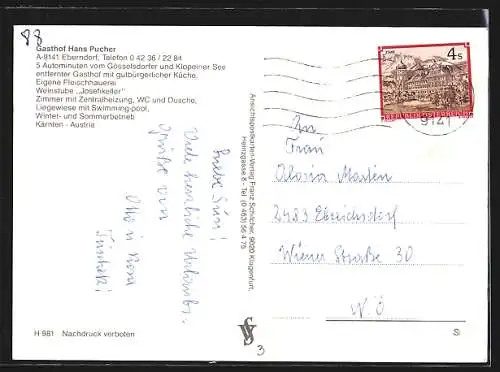 88
Gasthof Hans Pucher
A-9141 Eberndorf, Telefon 0 42 36 / 22 84
5 Autominuten vom Gösselsdorfer und Klopeiner See
entfernter Gasthof mit gutbürgerlicher Küche,
Eigene Fleischhauerei
Weinstube „Josefikeller"
Zimmer mit Zentralheizung, WC und Dusche,
Liegewiese mit Swimming-pool,
Winter- und Sommerbetrieb
Kärnten - Austria
Viele herzliche Urlaubs-
Grüße von
Otto u.
H 981 Nachdruck verboten
Ansichtspostkarten-Verlag Franz Schilcher, 9020 Klagenfurt,
Heinzgasse 8 - Tel. (0 463) 56 4 75
3
4 S
REPUBLIK ÖSTERREICH
9141
An
Frau
Maria Marten
2483 Ebreichsdorf
Wiener Straße 30
N.Ö
S